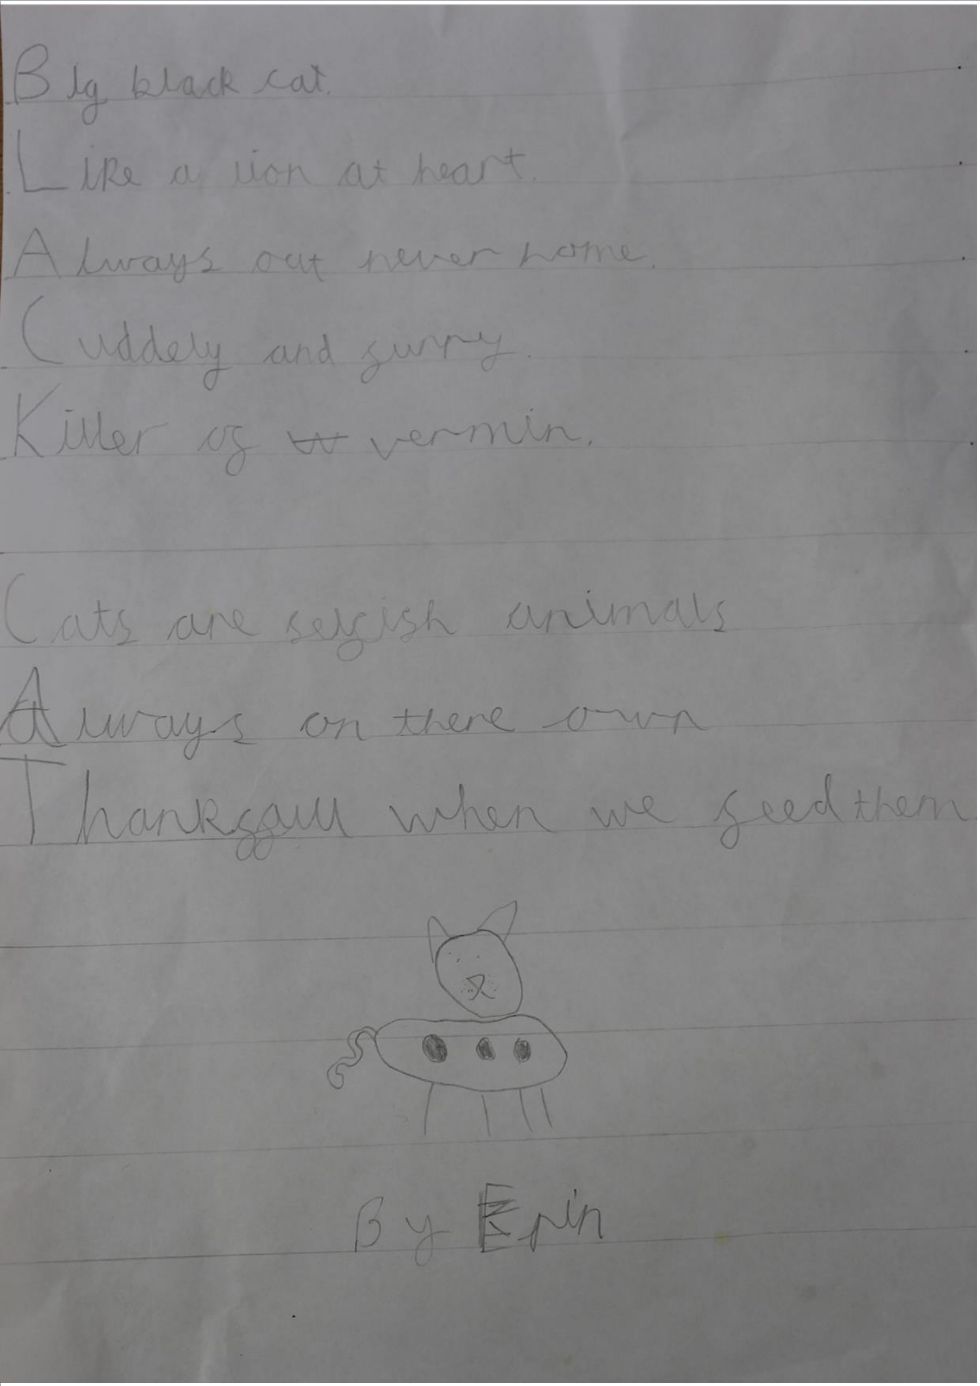 Big black cat.
Like a lion at heart.
Always out never home.
Cuddely and furry.
Killer of vermin.
Cats are selfish animals
Always on there own
Thankffull when we feed them
By Erin